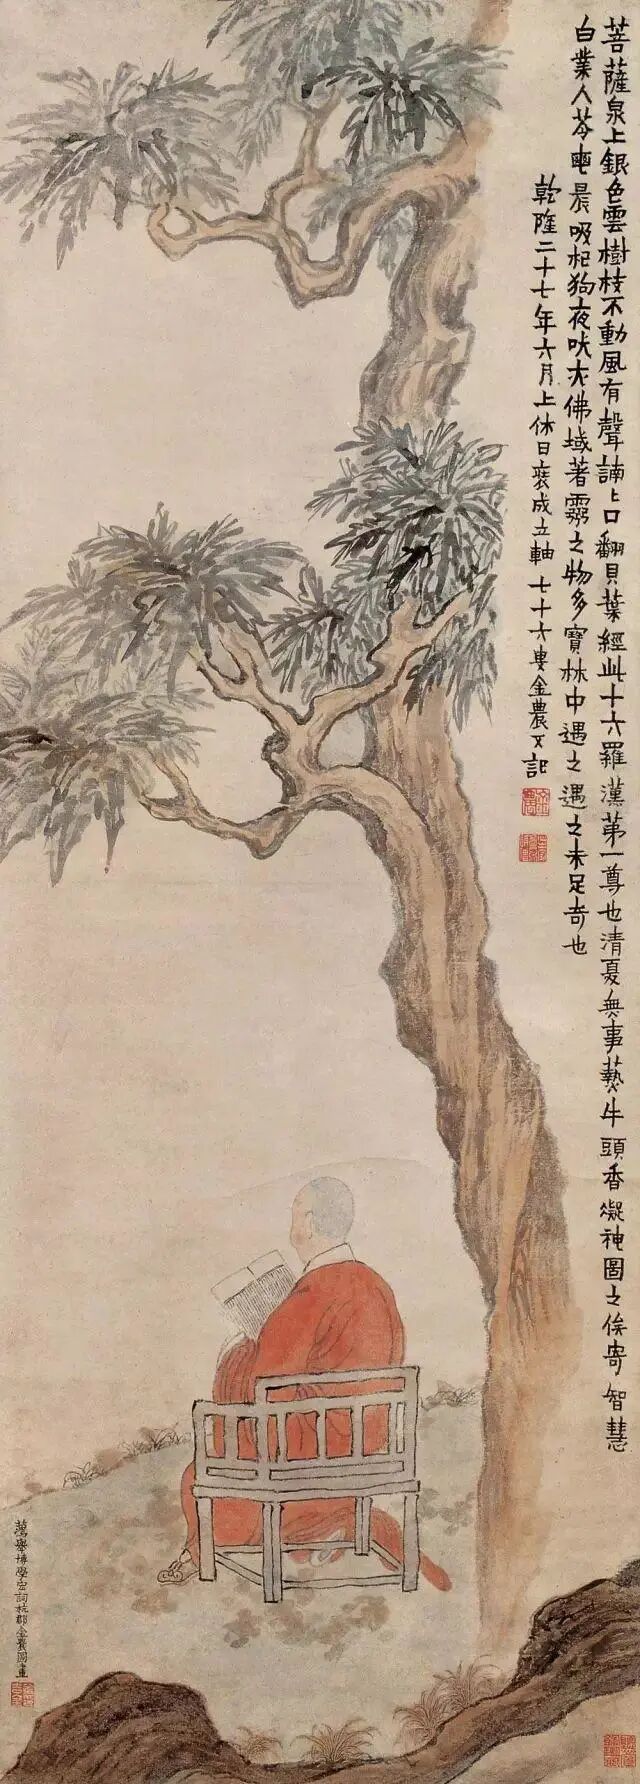 菩薩泉上銀色雲樹枝不動風有聲諵諵上口翻貝葉經此十六羅漢第一尊也清夏無事蓺牛頭香凝神圖之俟寄智慧
白業人苓晨吸杞狗夜吠大佛域著靈之物多寶林中遇之遇之未足奇也
乾隆二十七年六月上休日裝成立軸七十六叟金農又記
薦舉博學宏詞杭郡金農圖畫